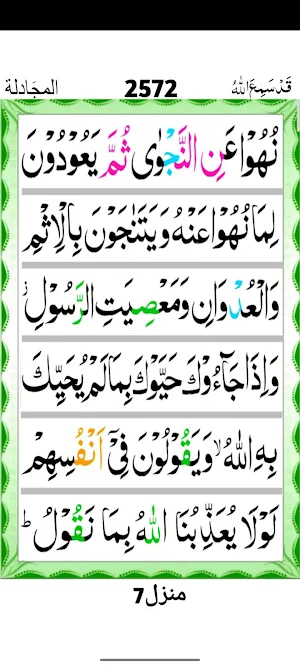 قَدْ سَمِعَ اللّٰهُ 2572 المجَادلة
نُهُوْا عَنِ النَّجْوٰى ثُمَّ يَعُوْدُوْنَ
لِمَا نُهُوْا عَنْهُ وَيَتَنٰجَوْنَ بِالْاِثْمِ
وَالْعُدْوَانِ وَمَعْصِيَتِ الرَّسُوْلِ ز
وَاِذَا جَآءُوْكَ حَيَّوْكَ بِمَا لَمْ يُحَيِّكَ
بِهِ اللّٰهُ ۙ وَيَقُوْلُوْنَ فِيْٓ اَنْفُسِهِمْ
لَوْلَا يُعَذِّبُنَا اللّٰهُ بِمَا نَقُوْلُ ؕ
منزل7